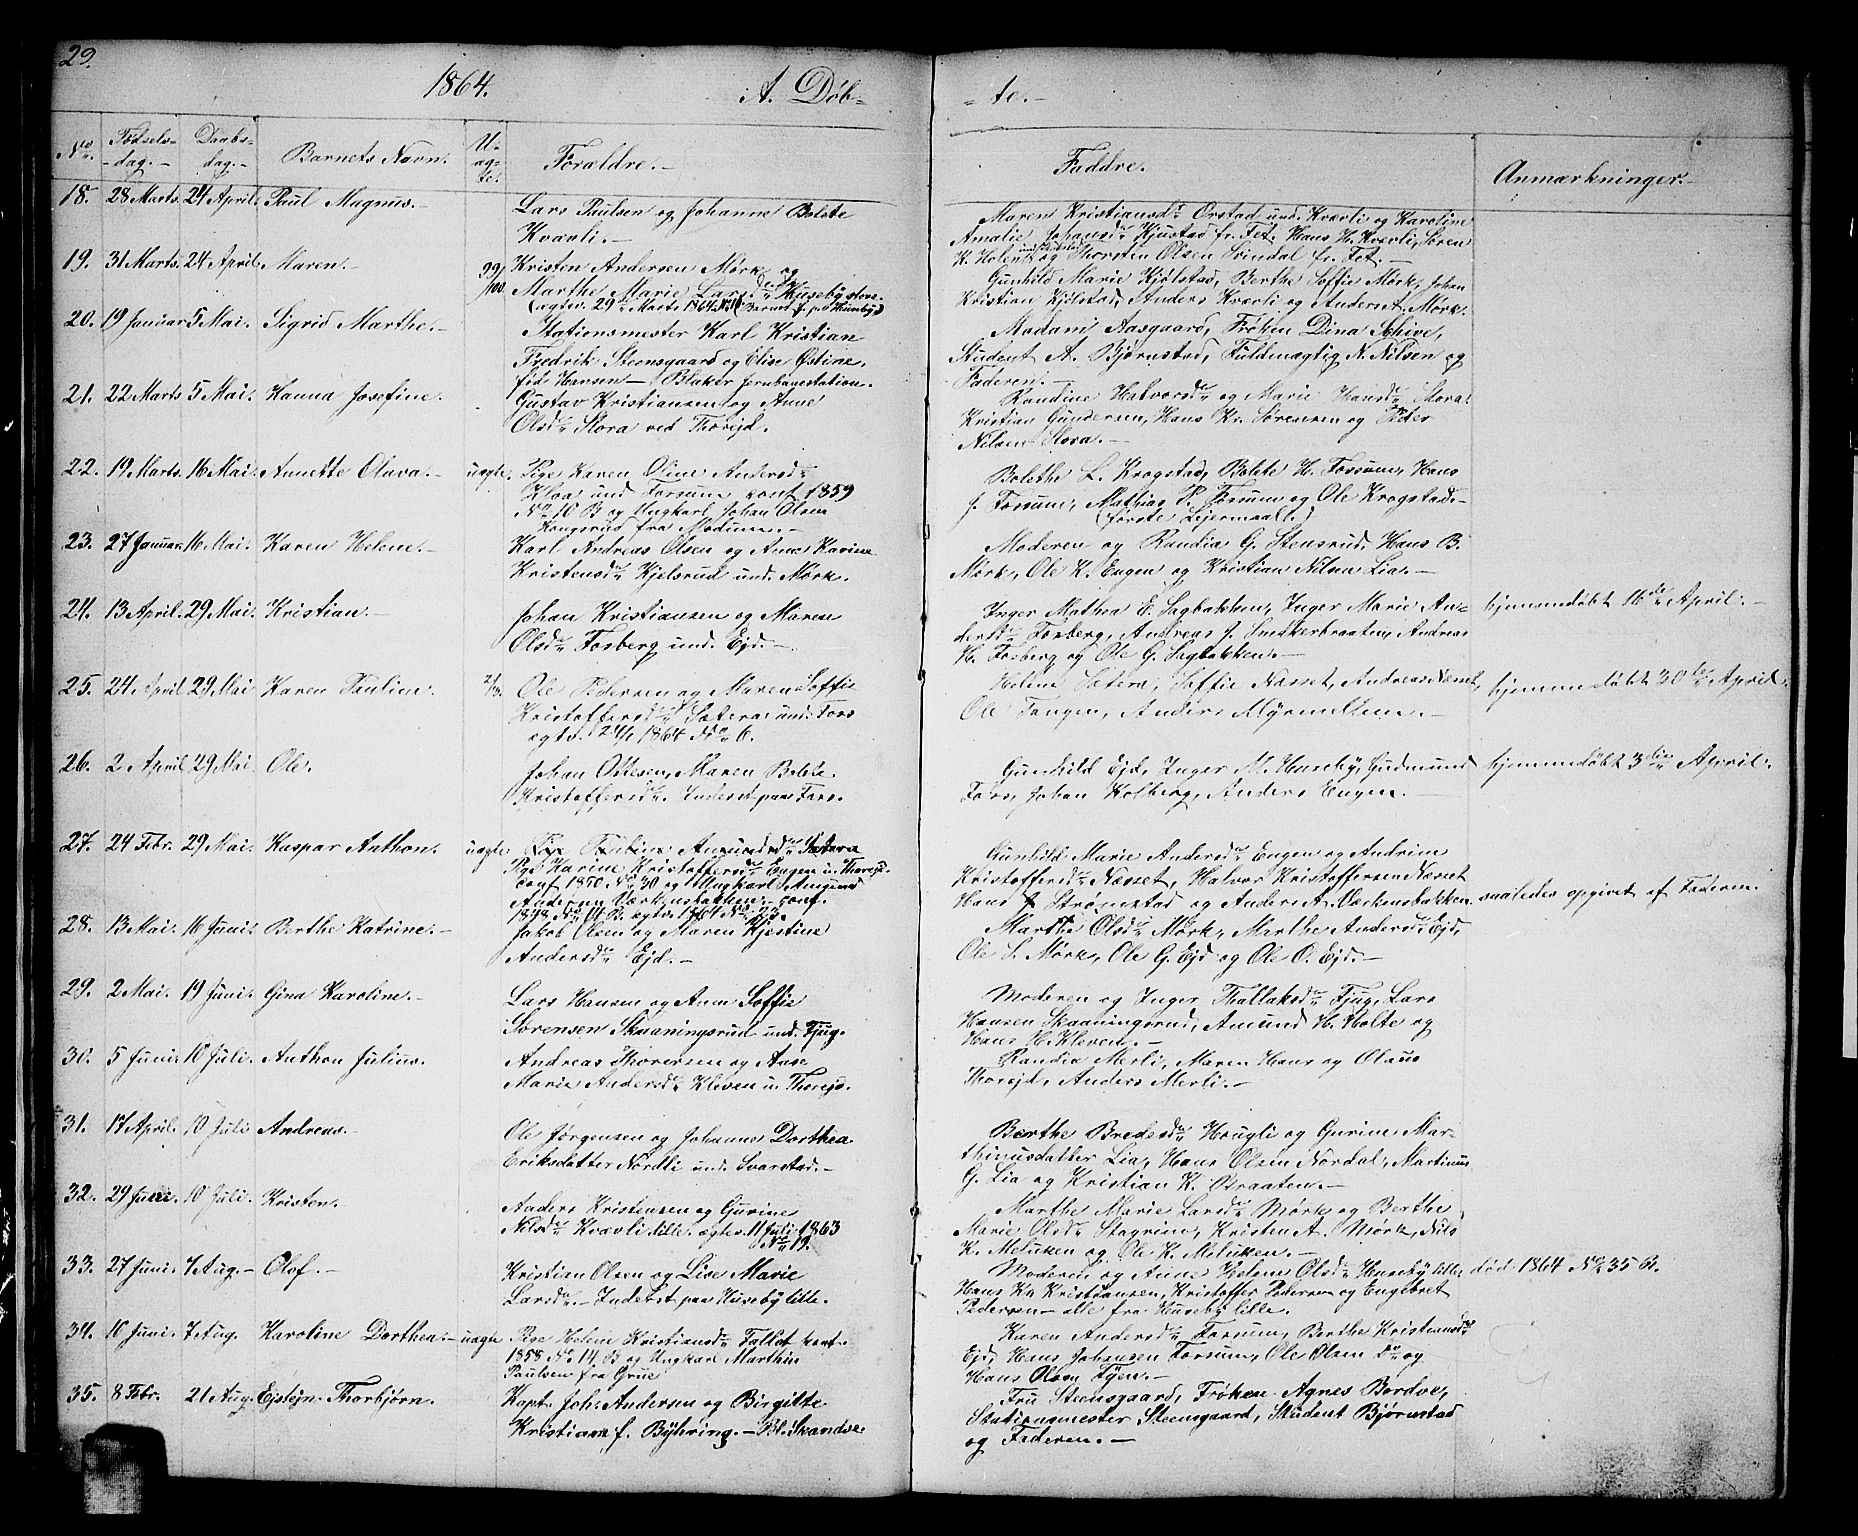 29.
1864. A. Døb- -te.-
No. Fødsels-dag.- Daabs-dag.- Barnets Navn. U-æg-te. Forældre.- Faddre. Anmærkninger.-
18. 28 Marts. 24 April. Paul Magnus.- Lars Paulsen og Johanne Bolete
Kvævli.-
Maren Kristiansdr Ørstad und. Kværli og Karoline
Amalie Johansdr Kjustad fr. Fet. Hans H. Kværli, Søren
K. Holen og Thorsten Olsen Sindal fr. Fet.-
19. 31 Marts. 24 April. Maren.- Kristen Andersen Mørk og
Marthe Marie Larsdr Huseby store.
(egtev. 29 Marts 1864
Gunhild Marie Kjølstad, Berthe Soffie Mørk, Johan
Kristian Kjølstad, Anders Kværli og Anders A. Mørk.
20. 19 Januar 5 Mai. Sigrid Marthe.- Stationsmester Karl Kristian
Fredrik Steensgaard og Elise Østine,
fød Hansen - Blaker Jernbanestation.
Madam Aasgaard, Frøken Dina Schive,
Student A. Bjørnstad, Fuldmægtig N. Nilsen og
Faderen.-
21. 22 Marts 5 Mai. Hanna Josefine. Gustav Kristiansen og Anne
Olsdr Stora ved Thorejd.
Randine Halvorsdr og Marie Hansdr Stora
Kristian Gundersen, Hans Kr. Sørensen og Peder
Nilsen Stora.-
22. 19 Marts. 16 Mai. Annette Olava.- uægte. Pige Karen Oline Andersdr
Kloa und Forsum conf 1859
No 10 B og Ungkarl Johan Olsen
Kongsrud fra Modum.-
Bolethe L. Krogstad, Bolete H. Forsum, Hans
J. Forsum, Mathias P. Forsum og Ole Krogstad.-
(første Leiermaal.)
23. 27 Januar 16 Mai. Karen Helene.- Karl Andreas Olsen og Anne Karine
Kristensdr Kjelsrud und. Mørk.
Moderen og Randia G. Stensrud, Hans B.
Mørk, Ole K. Engen og Kristian Nilsen Lia.-
24. 13 April. 29 Mai. Kristian.- Johan Kristiansen og Maren
Olsdr Fosberg und. Ejd.-
Inger Mathea E. Sagbakken, Inger Marie An-
dersdr Fosberg, Andreas J. Snekkerbraaten, Andreas
H. Fosberg og Ole G. Sagbakken.-
hjemmedøbt 16de April.-
25. 24 April 29 Mai Karen Pauline. Ole Pedersen og Maren Soffie
Kristoffersdr Sætera und. Fors
egtv. 2/1 1864 No 6.
Helene Sætera, Soffie Næsset, Andreas Næsset,
Ole Tangen, Anders Myrmellem.-
hjemmedøbt 30te April.
26. 2 April 29 Mai. Ole. Johan Ottesen, Maren Bolete
Kristoffersdr. Inderst paa Fors.
Gunhild Ejd, Inger M. Huseby, Gudmund
Fors, Johan Kolberg, Anders Engen.-
hjemmedøbt 3die April.
27. 24 Febr. 29 Mai. Kaspar Anthon. uægte Pige Pauline Amundsdr Sætera
Pige Karine Kristoffersdr Engen u. Thorejd.
conf 1850 No 30 og Ungkarl Amund
Andersen Værkensbakken.- conf.
1848 No 14 B. egtv. 1864 No
Gunhild Marie Andersdr Engen og Andrine
Kristoffersdr Næsset, Halvor Kristoffersen Næsset
Hans Strømstad og Anders A. Værkensbakken.
saaledes opgivet af Faderen.
28. 13 Mai. 16 Juni. Berthe Katrine.- Jakob Olsen og Maren Kjestine
Andersdr Ejd.-
Marthe Olsdr Mørk, Marthe Andersdr Ejd,
Ole S. Mørk, Ole G. Ejd og Ole O. Ejd.-
29. 2 Mai. 19 Juni. Gina Karoline.- Lars Hansen og Anne Soffie
Sørensen Skaaningsrud und. Tjug.
Moderen og Inger Thollaksdr Tjug, Lars
Hansen Skaaningsrud, Amund H. Holte og
Hans H. Kleven.-
30. 5 Juni. 10 Juli. Anthon Julius. Andreas Thoresen og Anne
Marie Andersdr Kleven u. Thorejd.
Randia Merli, Maren Hans og Olaus
Thorejd, Anders Merli.-
31. 17 April. 10 Juli Andreas.- Ole Jørgensen og Johanne Dorthea
Eriksdatter Nordli und. Svarstad.-
Berthe Bredesdr Hougli og Gurine Mar-
thinusdatter Lia, Hans Olsen Nordal, Martinus
G. Lia og Kristian K. Braaten.-
32. 29 Juni. 10 Juli. Kristen. Anders Kristensen og Gurine
Nilsdr Kværli lille. egtev. 11 Juli 1863
No 19.
Marthe Marie Larsdr Mørk og Berthe
Marie Olsdr Stagrim, Kristen A. Mørk, Nils
K. Meliken og Ole K. Meliken.-
33. 27 Juni. 7 Aug.- Olof.- Kristian Olsen og Lise Marie
Larsdr.- Inderst paa Huseby lille.
Moderen og Anne Helene Olsdr Huseby lille,
Hans Kr. Kristiansen, Kristoffer Pedersen og Engebret
Pedersen - alle fra Huseby lille.
død 1864 No 35 B.
34. 10 Juni. 7 Aug. Karoline Dorthea.- uægte Pige Helene Kristiansdr Fallet conf.
1858 No. 14 B og Ungkarl Marthin
Paulsen fra Grue
Karen Andersdr Forsum, Berthe Kristiansdr
Ejd, Hans Johansen Forsum, Ole Olsen do og
Hans Olsen Tjen.-
35. 8 Febr. 21 Aug. Ejstejn Thorbjørn. Kapt. Joh. Andersen og Birgitte
Kristiane f. Byhring.- Bl. Skandse.
Fru Steensgaard, Frøken Agnes Bordve,
Stationsmester Steensgaard, Student Bjørnstad
og Faderen.-